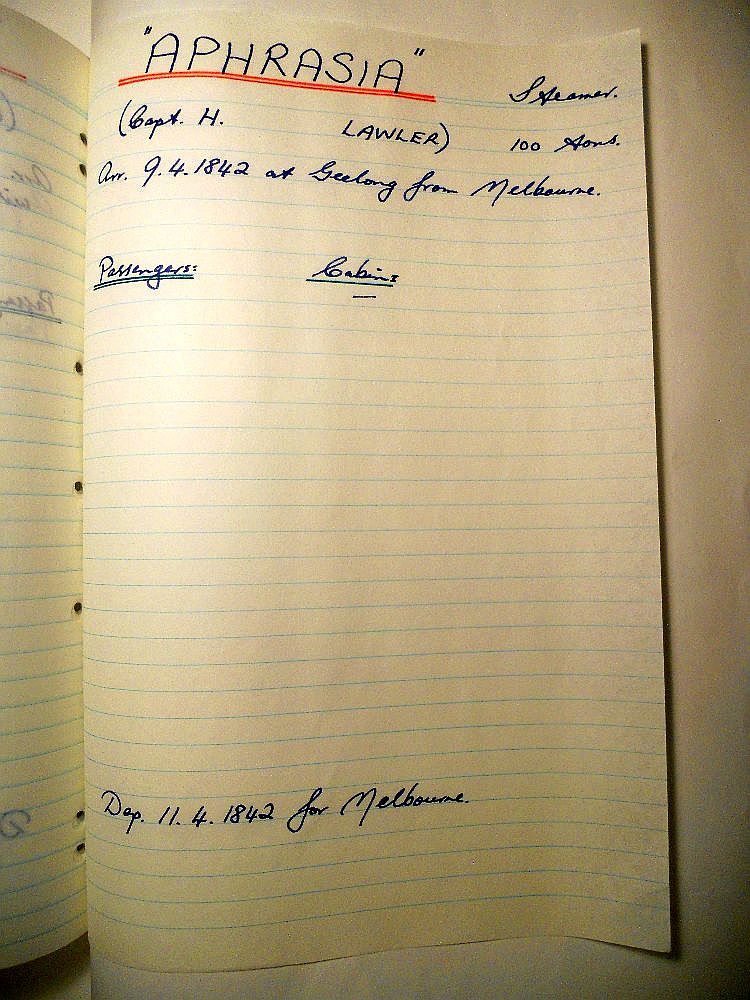 "APHRASIA" Steamer.
(Capt. H. LAWLER) 100 tons.
Arr. 9.4.1842 at Geelong from Melbourne.
Passengers: Cabin:
—
Dep. 11.4.1842 for Melbourne.